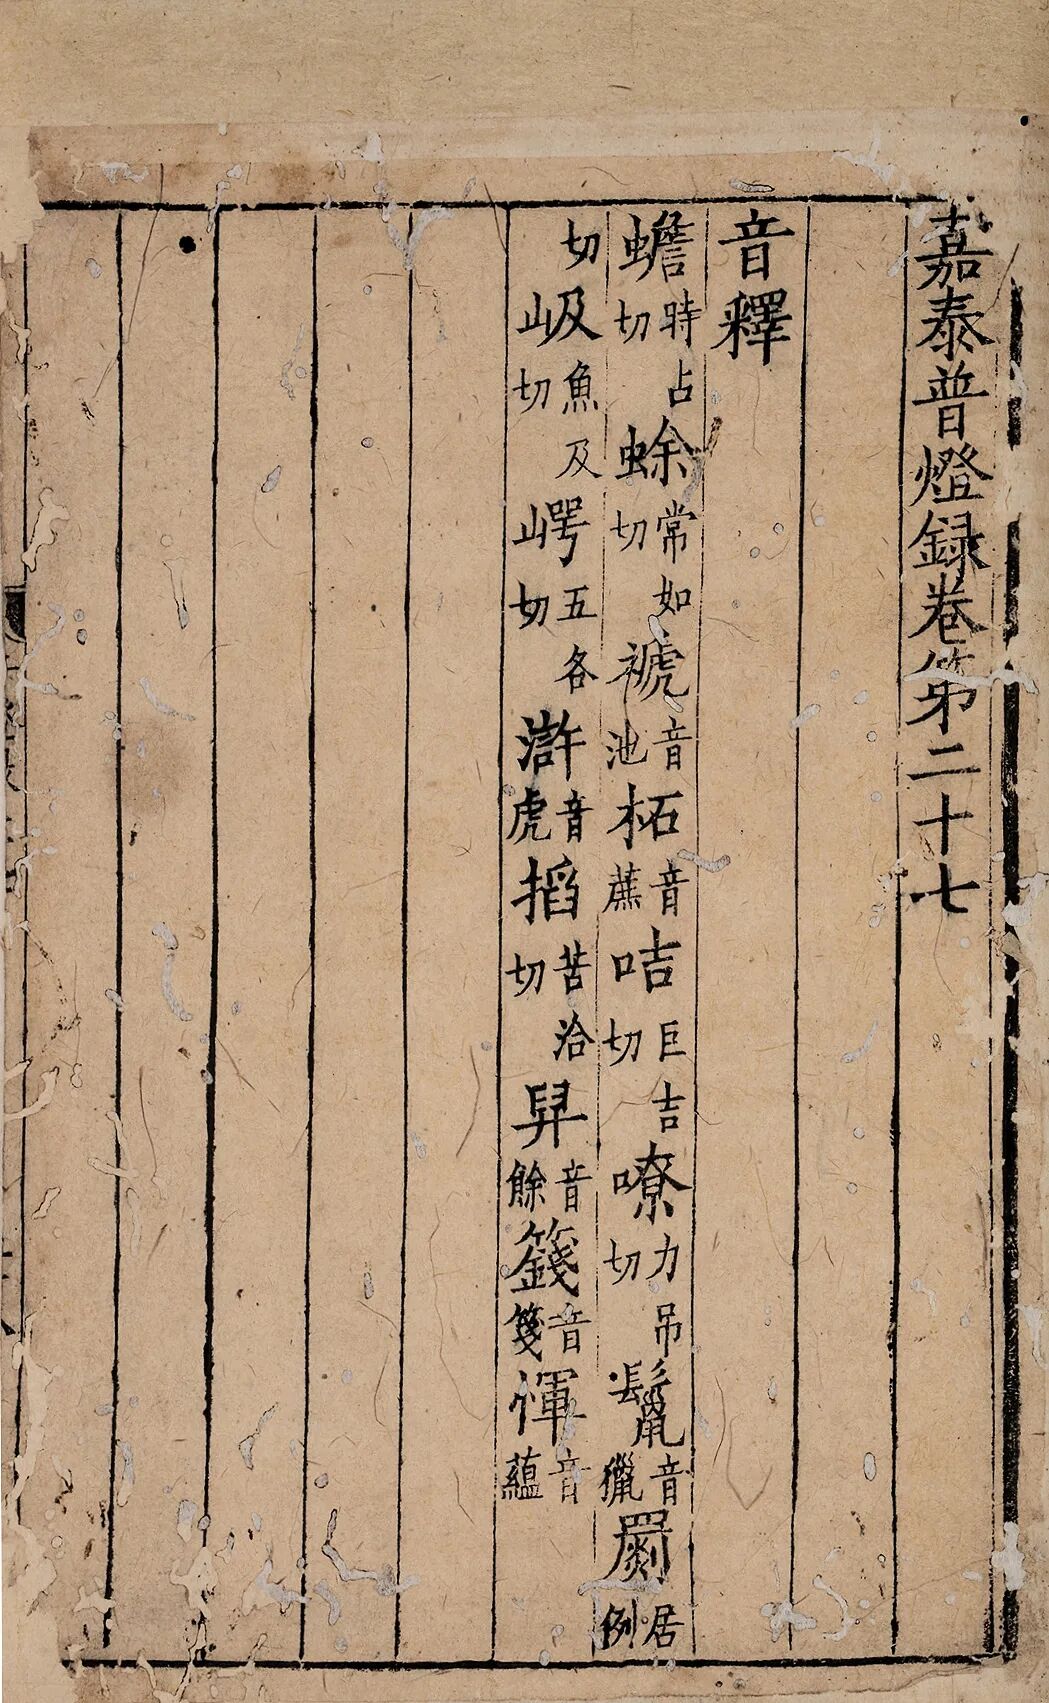 嘉泰普燈録卷第二十七
音釋
蟾時占切蜍常如切褫音池柘音蔗咭巨吉切嘹力吊切鬣音獵罽居例
切岋魚及切崿五各切滸音虎掐苦洽切舁音餘籛音箋惲音藴